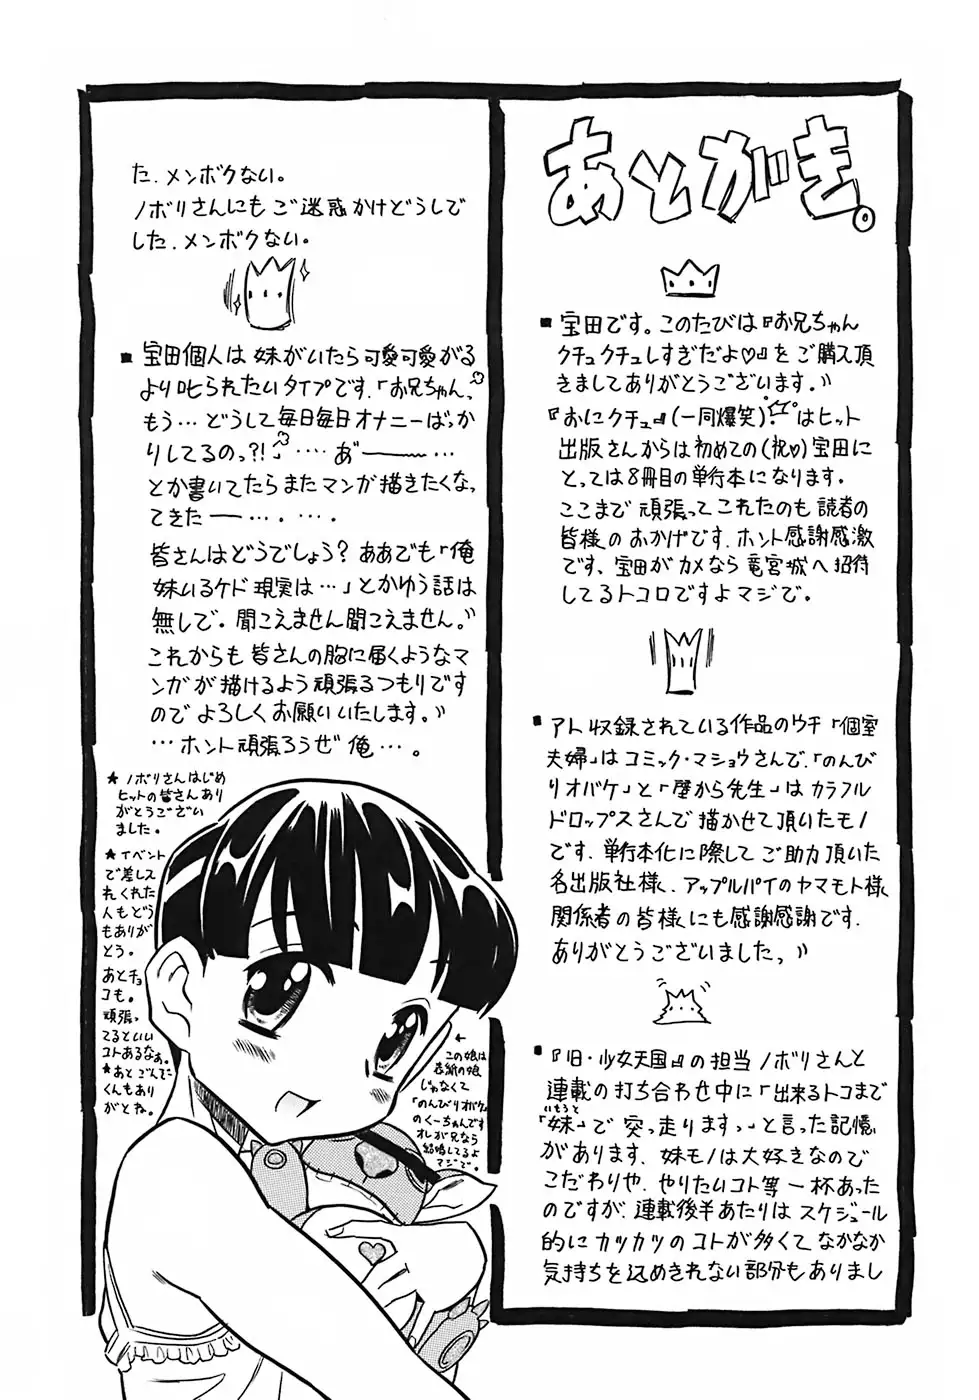 あとがき。
■宝田です。このたびは『お兄ちゃん
クチュクチュしすぎだよ♡』をご購入頂
きましてありがとうございます。〃
『おにクチュ』(一同爆笑)!はヒット
出版さんからは初めての(祝♡)宝田に
とっては8冊目の単行本になります。
ここまで頑張ってこれたのも読者の
皆様のおかげです、ホント感謝感激
です、宝田がカメなら竜宮城へ招待
してるトコロですよマジで。
■アト収録されている作品のウチ「個室
夫婦」はコミック・マショウさんで、「のんび
りオバケ」と「壁から先生」はカラフル
ドロップスさんで描かせて頂いたモノ
です、単行本化に際してご助力頂いた
各出版社様、アップルパイのヤマモト様
関係者の皆様にも感謝感謝です.
ありがとうございましたっ〃
■『旧・少女天国』の担当ノボリさんと
連載の打ち合わせ中に「出来るトコまで
いもうと
「妹」で突っ走りますっ」と言った記憶
があります、妹モノは大好きなので
こだわりや、やりたいコト等一杯あった
のですが、連載後半あたりはスケジュール
的にカツカツのコトが多くてなかなか
気持ちを込めきれない部分もありまし
た、メンボクない。
ノボリさんにもご迷惑かけどうしで
した、メンボクない。
■宝田個人は妹がいたら可愛可愛がる
より叱られたいタイプです。「お兄ちゃん、
もう…どうして毎日毎日オナニーばっか
りしてるのっ?!」‥‥あ゛ー‥‥
とか書いてたらまたマンガ描きたくなっ
てきたー…．…．
皆さんはどうでしょう?ああでも「俺
妹いるケド現実は…」とかゆう話は
無しで。聞こえません聞こえません。〃
これからも皆さんの胸に届くようなマ
ンガが描けるよう頑張るつもりです
のでよろしくお願いいたします。〃
…ホント頑張ろうぜ俺…。
★ノボリさんはじめ
ヒットの皆さんあり
がとうござい
ました。
★イベント
で差し入
れくれた
人もどう
もありが
とう。
あとチョ
コも。
頑張っ
てるといい
コトあるなぁ。
★あとごんた
くんもあり
がとね。
←
この娘は
表紙の娘
じゃなくて
「のんびりオバケ」
のくーちゃんです
オレが兄なら
結婚してるよ
マジで。